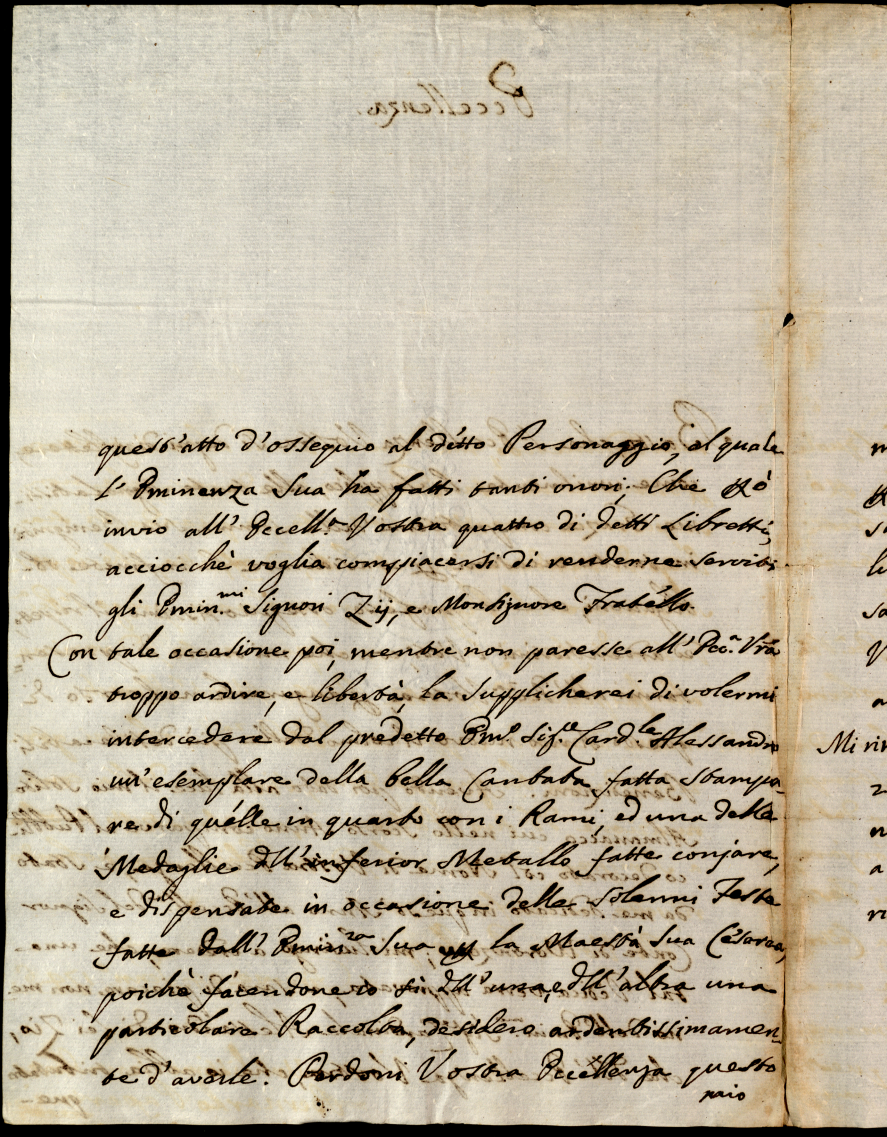 quest'atto d'ossequio al detto Personaggio, al quale
l'Eminenza Sua ha fatti tanti onori; Che però
invio all'Eccell.ᵃ Vostra quattro di detti Libretti,
acciocchè voglia compiacersi di renderne serviti
gli Emin.ᵐⁱ Signori Zij, e Monsignore Fratello.
Con tale occasione poi, mentre non paresse all'Ecc.ᵃ Vrã
troppo ardire, e libertà, la supplicherei di volermi
intercedere dal predetto Em.º Sig.ʳᵉ Card.ˡᵉ Alessandro
un'esemplare della bella Cantata fatta stampa-
re di quelle in quarto con i Rami, ed una delle
Medaglie dell'inferior Metallo fatte conjare,
e dispensate in occasione delle solenni Feste
fatte dall'Emin.ᶻᵃ Sua per la Maestà Sua Cesarea,
poichè facendone io sì dell'una, e dell'altra una
particolare Raccolta, desidero ardentissimamen-
te d'averle. Perdoni Vostra Eccellenza questo
mio
Mi rin